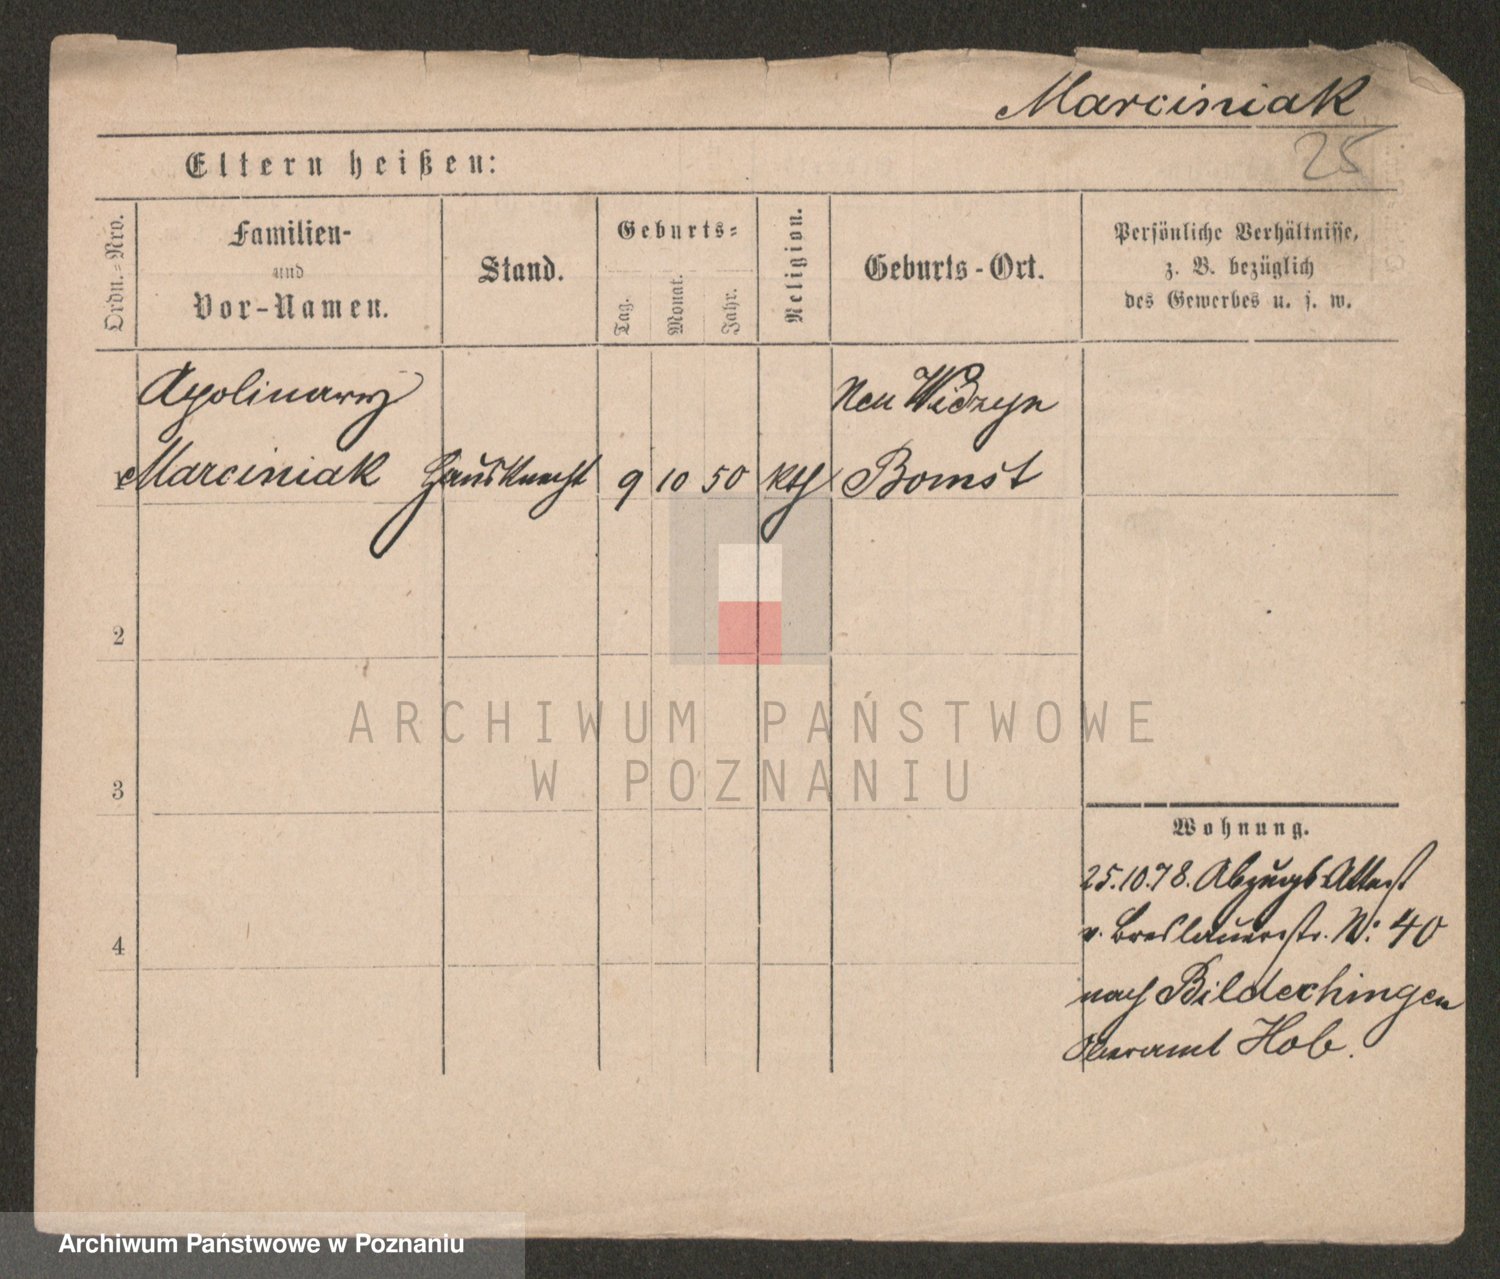 Marciniak
25
Eltern heißen:
Ordn.-Nro.
Familien-
und
Vor-Namen.
Stand.
Geburts-
Tag.
Monat.
Jahr.
Religion.
Geburts-Ort.
Persönliche Verhältnisse,
z. B. bezüglich
des Gewerbes u. s. w.
Apolinary
Neu Widzyn
1 Marciniak Hausknecht 9 10 50 kth Bomst
2
ARCHIWUM PAŃSTWOWE
W POZNANIU
3
Wohnung.
25.10.78. Abzugs Attest
v. Breslauerstr. N: 40
4
nach Bildechingen
Oberamt Hob.
Archiwum Państwowe w Poznaniu